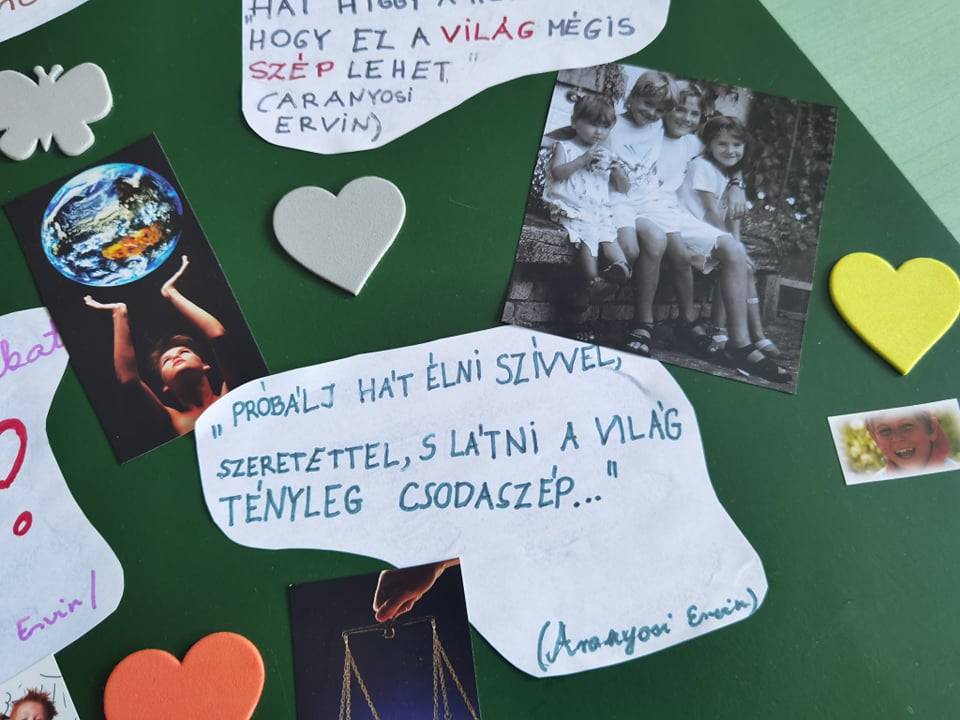 „HÁT HIGGY A
HOGY EZ A VILÁG MÉGIS
SZÉP LEHET"
(ARANYOSI
ERVIN)
„PRÓBÁLJ HÁT ÉLNI SZÍVVEL,
SZERETETTEL, S LÁTNI A VILÁG
TÉNYLEG CSODASZÉP..."
(Aranyosi Ervin)
Ervin/